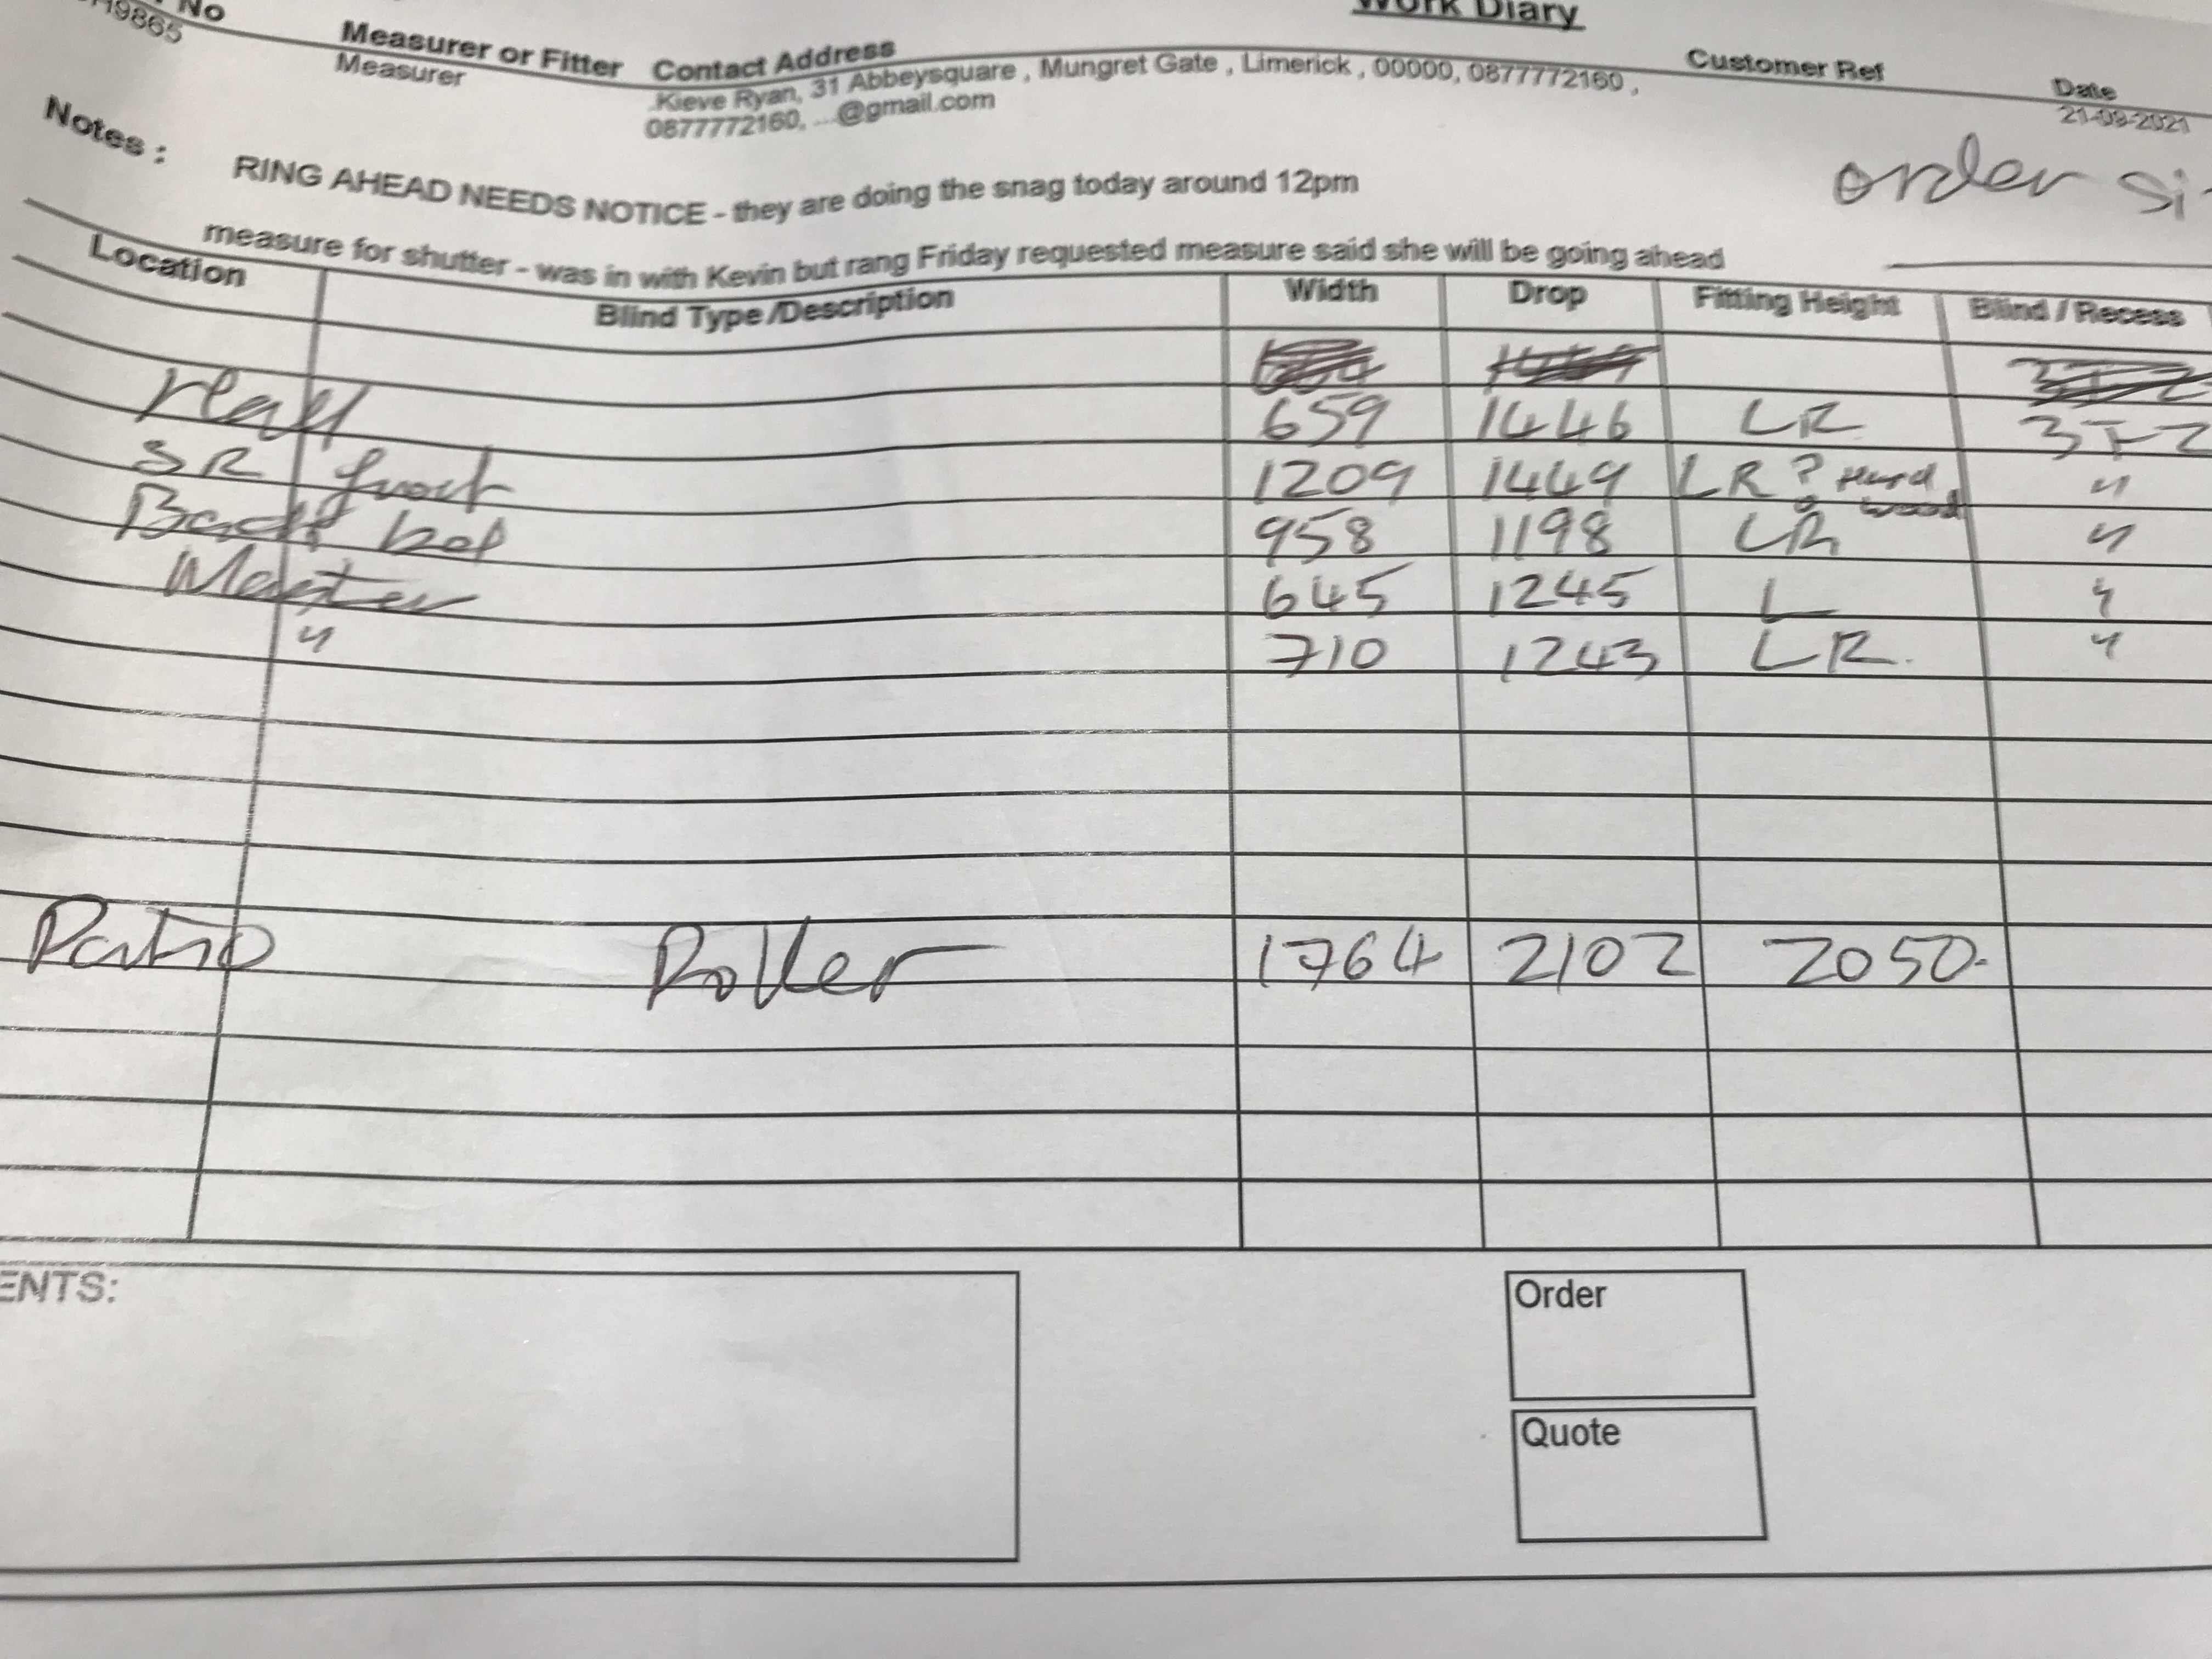 Work Diary
No Measurer or Fitter Contact Address Customer Ref Date
19865 Measurer Kieve Ryan, 31 Abbeysquare , Mungret Gate , Limerick , 00000, 0877772160 , 21-09-2021
0877772160, ...@gmail.com
order si
Notes : RING AHEAD NEEDS NOTICE - they are doing the snag today around 12pm
measure for shutter - was in with Kevin but rang Friday requested measure said she will be going ahead
Location Blind Type /Description Width Drop Fitting Height Blind / Recess
Hall 659 1446 LR
SR front 1209 1449 LR ? Hard wood "
Back bed 958 1198 LR "
Master 645 1245 L "
" 710 1243 LR. "
Patio Roller 1764 2102 2050.
ENTS:
Order
Quote